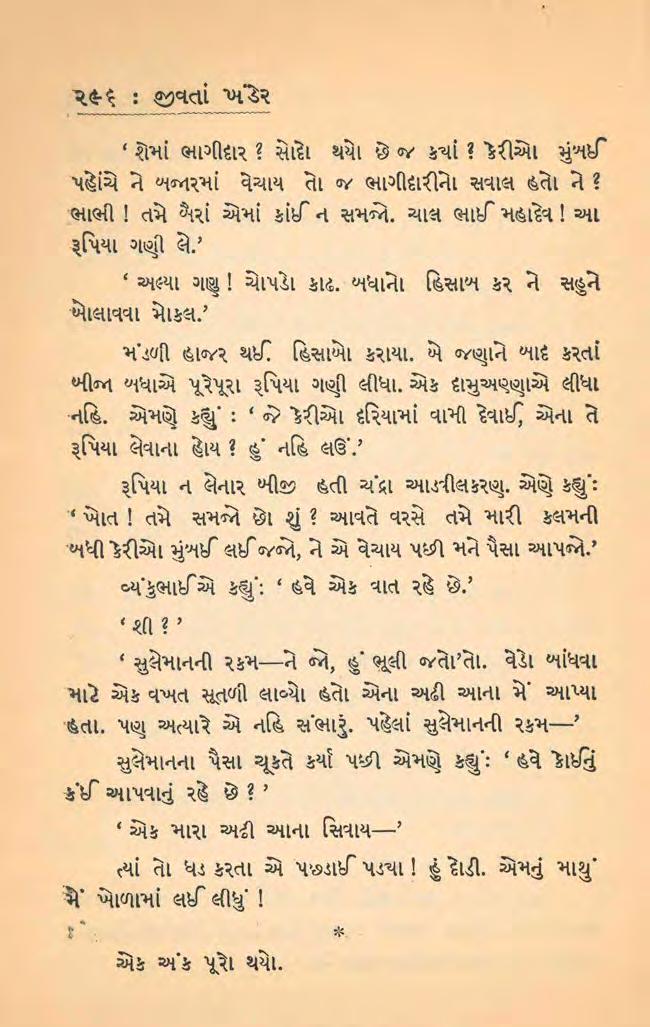 ૨૯૬ : જીવતાં ખંડેર
‘ શેમાં ભાગીદાર ? સોદો થયો છે જ ક્યાં ? કેરીઓ મુંબઈ
પહોંચે ને બજારમાં વેચાય તો જ ભાગીદારીનો સવાલ હતો ને ?
ભાભી ! તમે બૈરાં એમાં કાંઈ ન સમજો. ચાલ ભાઈ મહાદેવ ! આ
રૂપિયા ગણી લે.’
‘ અલ્યા ગણુ ! ચોપડો કાઢ. બધાનો હિસાબ કર ને સહુને
બોલાવવા મોકલ.’
મંડળી હાજર થઈ. હિસાબો કરાયા. બે જણાને બાદ કરતાં
બીજા બધાએ પૂરેપૂરા રૂપિયા ગણી લીધા. એક દામુઅણ્ણાએ લીધા
નહિ. એમણે કહ્યું : ‘ જે કેરીઓ દરિયામાં વામી દેવાઈ, એના તે
રૂપિયા લેવાના હોય ? હું નહિ લઉં.’
રૂપિયા ન લેનાર બીજી હતી ચંદ્રા આડત્રીલકરણ. એણે કહ્યું:
‘ ખોત ! તમે સમજો છો શું ? આવતે વરસે તમે મારી કલમની
બધી કેરીઓ મુંબઈ લઈ જજો, ને એ વેચાય પછી મને પૈસા આપજો.’
વ્યંકુભાઈએ કહ્યું: ‘ હવે એક વાત રહે છે.’
‘ શી ? ’
‘ સુલેમાનની રકમ—ને જો, હું ભૂલી જતો’તો. વેડો બાંધવા
માટે એક વખત સૂતળી લાવ્યો હતો એના અઢી આના મેં આપ્યા
હતા. પણ અત્યારે એ નહિ સંભારું. પહેલાં સુલેમાનની રકમ—’
સુલેમાનના પૈસા ચૂકતે કર્યા પછી એમણે કહ્યું: ‘ હવે કોઈનું
કંઈ આપવાનું રહે છે ? ’
‘ એક મારા અઢી આના સિવાય—’
ત્યાં તો ધડ કરતા એ પછડાઈ પડ્યા ! હું દોડી. એમનું માથું
મેં ખોળામાં લઈ લીધું !
*
એક અંક પૂરો થયો.